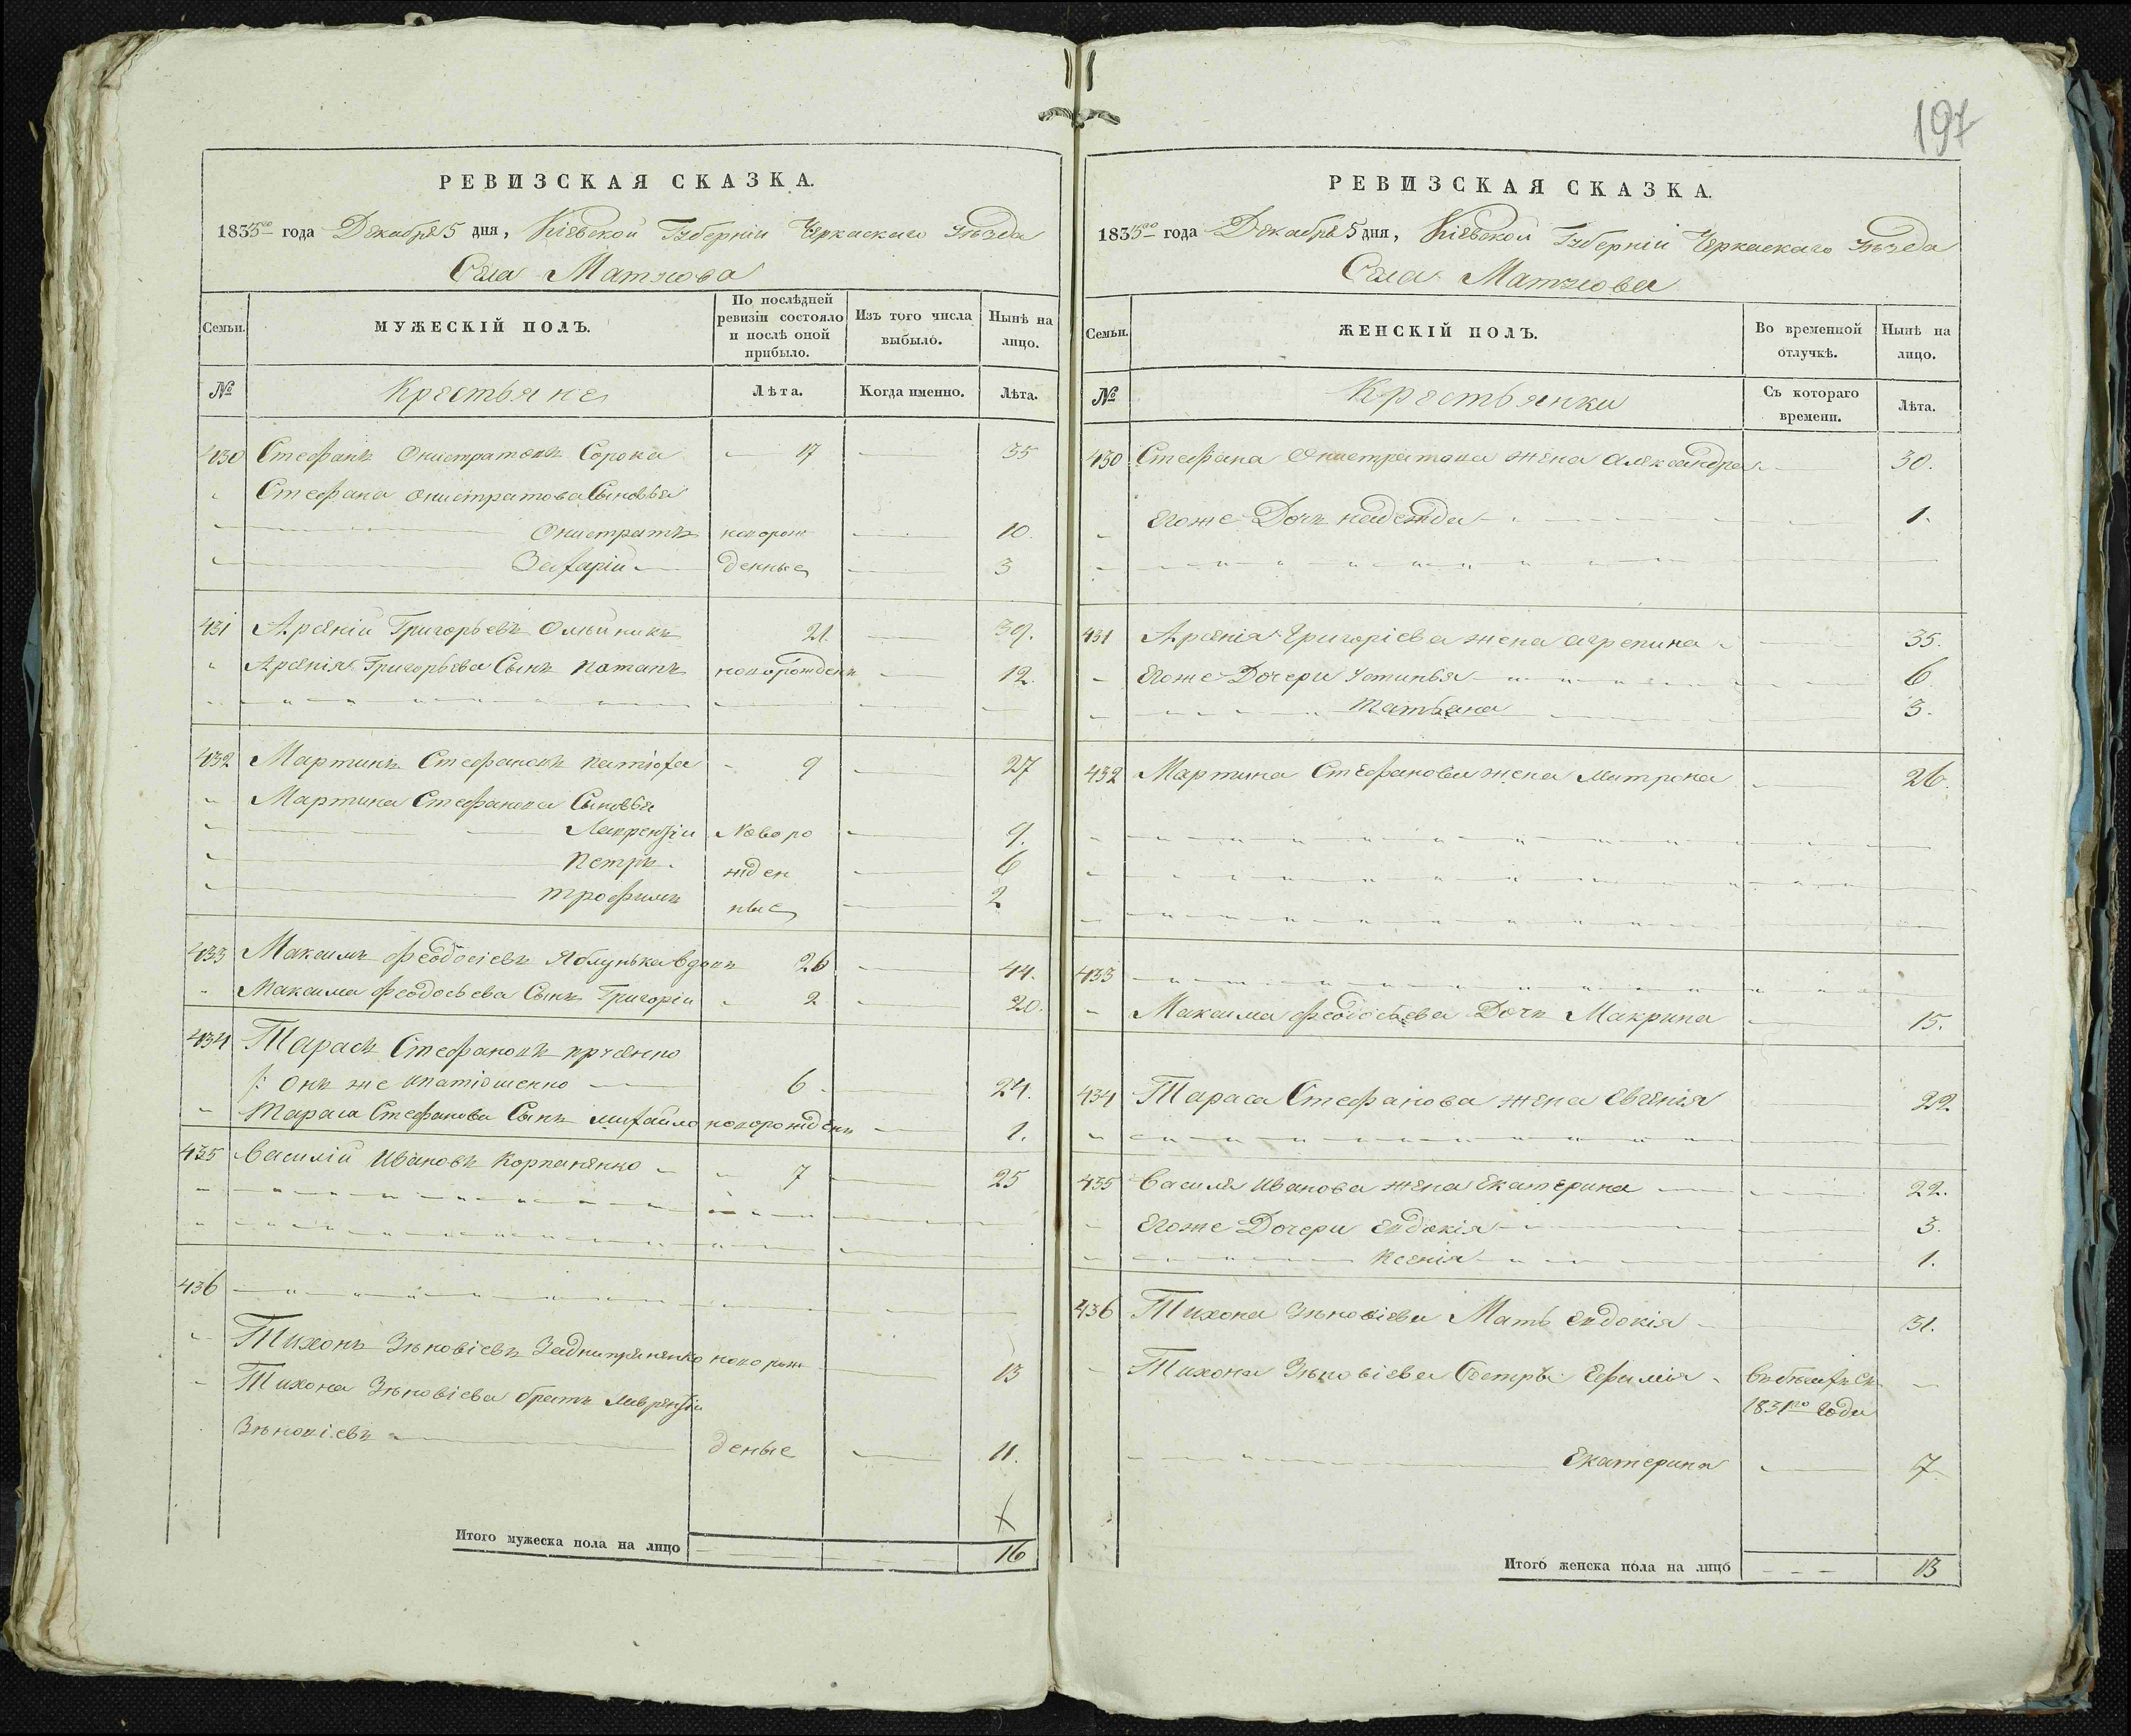 197
РЕВИЗСКАЯ СКАЗКА.
1835го года Декабря 5 дня, Кіевской Губерніи Черкаскаго Уѣзда
Села Матусова
Семьи. МУЖЕСКІЙ ПОЛЪ. По послѣдней ревизіи состояло и послѣ оной прибыло. Изъ того числа выбыло. Нынѣ на лицо.
№ Крестьяне Лѣта. Когда именно. Лѣта.
430 Стефанъ Онистратовъ Сорока 17 35
Стефана Онистратова Сыновья
Онистратъ новорож 10.
Захарій денные 3
431 Арсеній Григорьевъ Олѣйникъ 21. 39.
Арсенія Григорьева Сынъ Потапъ новорожденъ 12.
432 Мартинъ Стефановъ Патіоха 9 27
Мартина Стефанова Сыновья
Лаврентіи Новоро 9.
Петръ жден 6
Трофимъ ные 2
433 Максимъ Феодосіевъ Яблунька вдовъ 26 44.
Максима Феодосьева Сынъ Григоріи 2 20.
434 Тарасъ Стефановъ
/: Онъ же Ипатіошенко 6 24.
Тараса Стефанова Сынъ Михайло новорожденъ 1.
435 Василій Ивановъ Корпаненко 7 25
436
Тихонъ Зѣновіевъ Заднипряненко новорож 13
Тихона Зѣновіева братъ Лаврентіи
Зѣновіевъ деные 11.
Итого мужеска пола на лицо 16
РЕВИЗСКАЯ СКАЗКА.
1835го года Декабря 5 дня, Кіевской Губерніи Черкаскаго Уѣзда
Села Матусова
Семьи. ЖЕНСКІЙ ПОЛЪ. Во временной отлучкѣ. Нынѣ на лицо.
№ Крестьянки Съ котораго времени. Лѣта.
430 Стефана Онистратова жена Александра 30.
Егоже Дочъ Надежда 1.
431 Арсенія Григоріева жена Агрепина 35.
Егоже Дочери Устинья 6
Татьяна 3.
432 Мартина Стефанова жена Митрона 26.
433
Максима Феодосьева Дочъ Макрина 15.
434 Тараса Стефанова жена Евгенія 22
435 Василя Иванова жена Екатерина 22.
Егоже Дочери Евдокія 3.
Ксенія 1.
436 Тихона Зѣновіева Мать Евдокія 31.
Тихона Зѣновіева Сестры Ефимія Въ бѣгахъ Съ
1831го Года
Екатерина 7
Итого женска пола на лицо 13